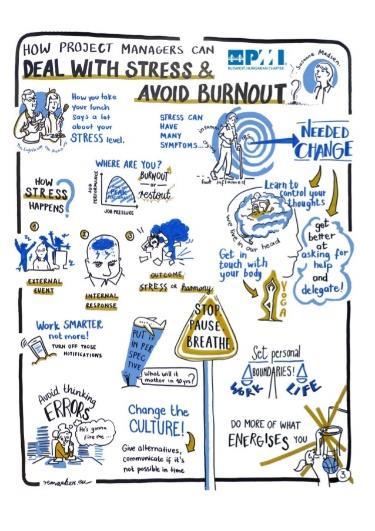 HOW PROJECT MANAGERS CAN
DEAL WITH STRESS &
AVOID BURNOUT
PMI
BUDAPEST, HUNGARIAN CHAPTER
Susanne Madsen
How you take
your lunch
says a lot
about your
STRESS level.
STRESS CAN
HAVE
MANY
SYMPTOMS
NEEDED
CHANGE
WHERE ARE YOU?
JOB PERFORMANCE
JOB PRESSURE
BURNOUT
or
restout
HOW
STRESS
HAPPENS?
1
2
3
EXTERNAL
EVENT
INTERNAL
RESPONSE
OUTCOME
STRESS or harmony
Learn to
control your
thoughts
we live in our head
get
better at
asking for
help
and
delegate!
Get in
touch with
your body
YOGA
STOP
PAUSE
BREATHE
Work SMARTER
not more!
TURN OFF THOSE
NOTIFICATIONS
PUT IT
IN PER
SPEC
TIVE
What will it
matter in 10 yrs?
Set personal
BOUNDARIES!
WORK
LIFE
Avoid thinking
ERRORS
He's gonna
fire me...
Change the
CULTURE!
Give alternatives,
communicate if it's
not possible in time
DO MORE OF WHAT
ENERGISES YOU
remarker.eu